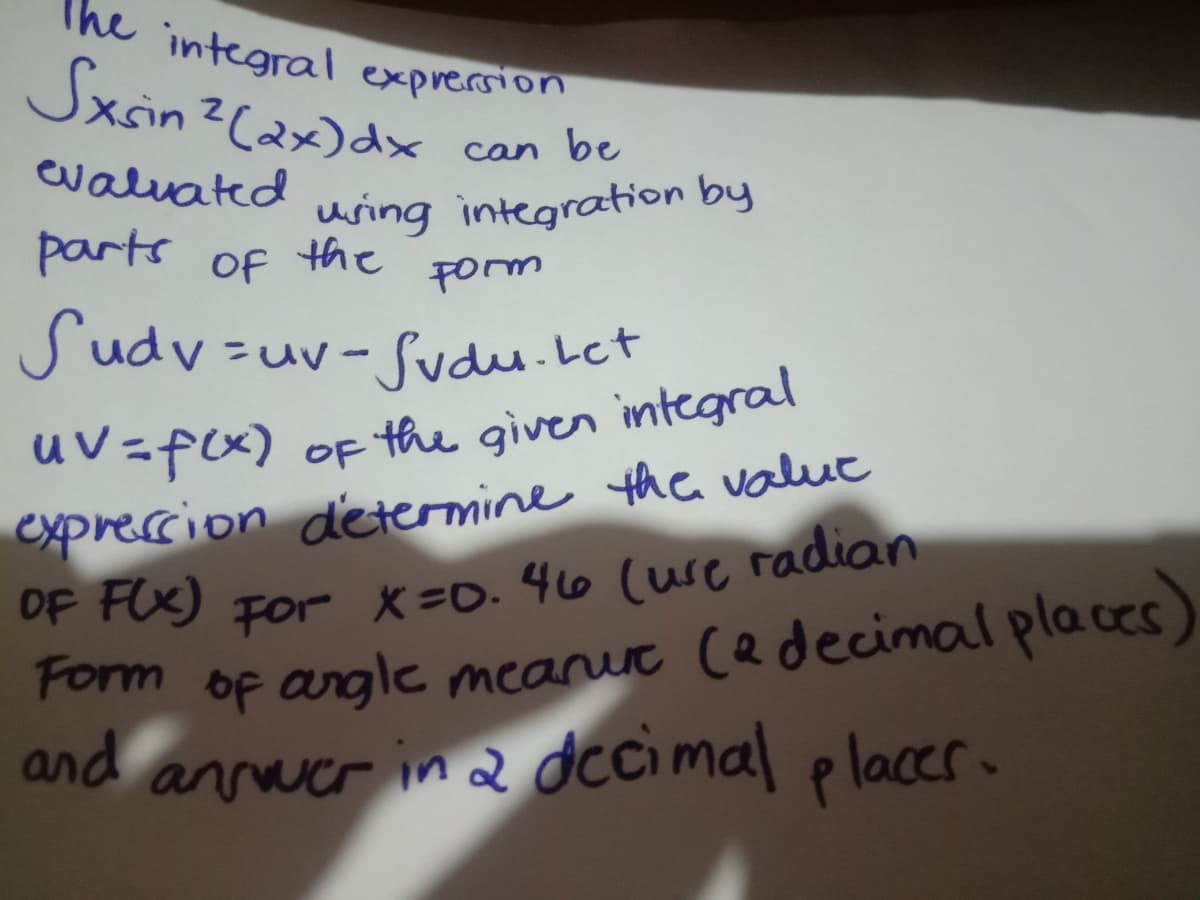 The integral expression
∫xsin²(2x)dx can be
evaluated using integration by
parts of the form
∫udv=uv-∫vdu. Let
uv=f(x) of the given integral
expression determine the value
of F(x) for x=0.46 (use radian
Form of angle measure (2 decimal places)
and answer in 2 decimal places.